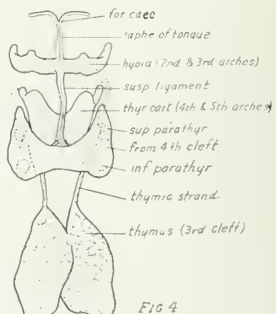 for caec
raphe of tongue
hyoid (2nd & 3rd arches)
susp ligament
thyr cart (4th & 5th arches)
sup parathyr
from 4th cleft
inf parathyr
thymic strand
thymus (3rd cleft)
FIG 4